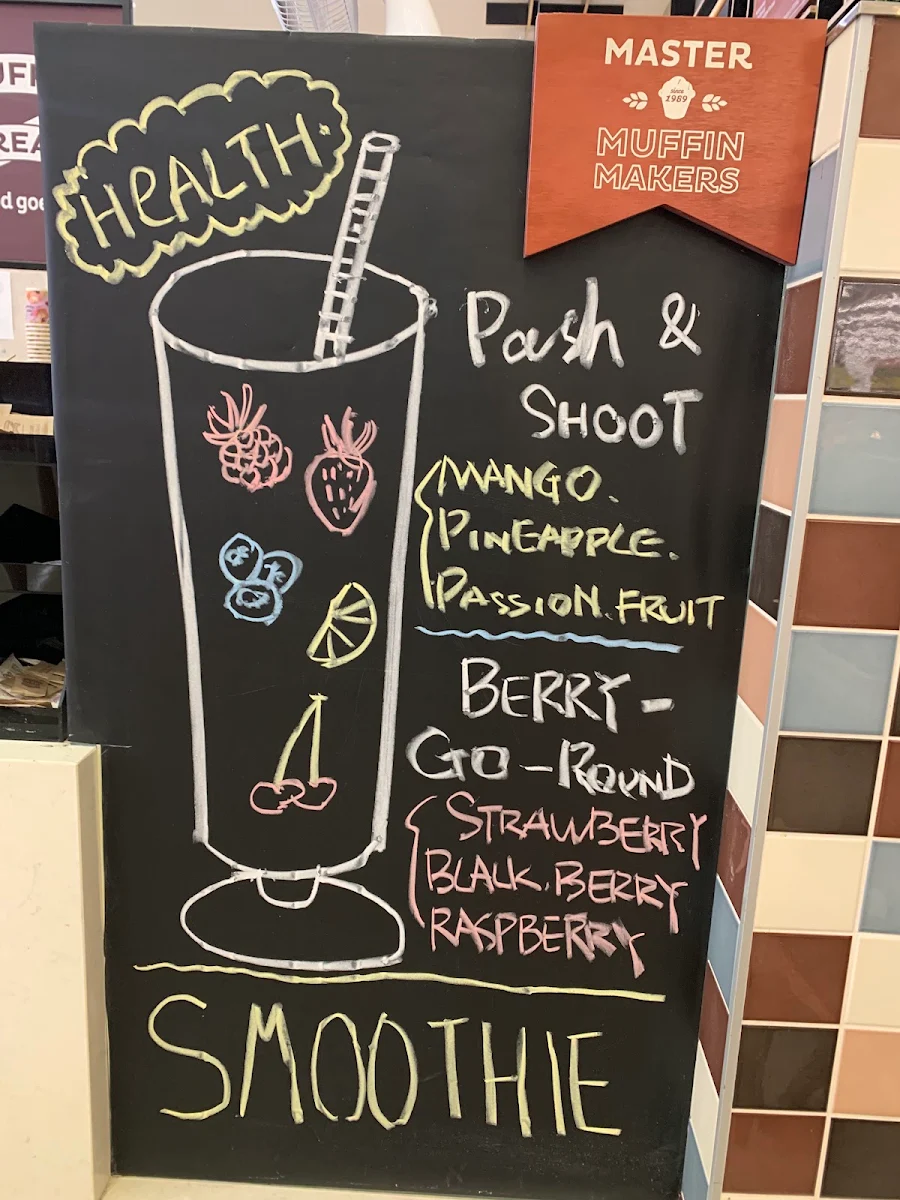 HEALTH
MASTER
Since
1989
MUFFIN
MAKERS
Pash &
SHOOT
MANGO.
PINEAPPLE.
PASSION.FRUIT
BERRY -
GO - ROUND
STRAWBERRY
BLALK.BERRY
RASPBERRY
SMOOTHIE